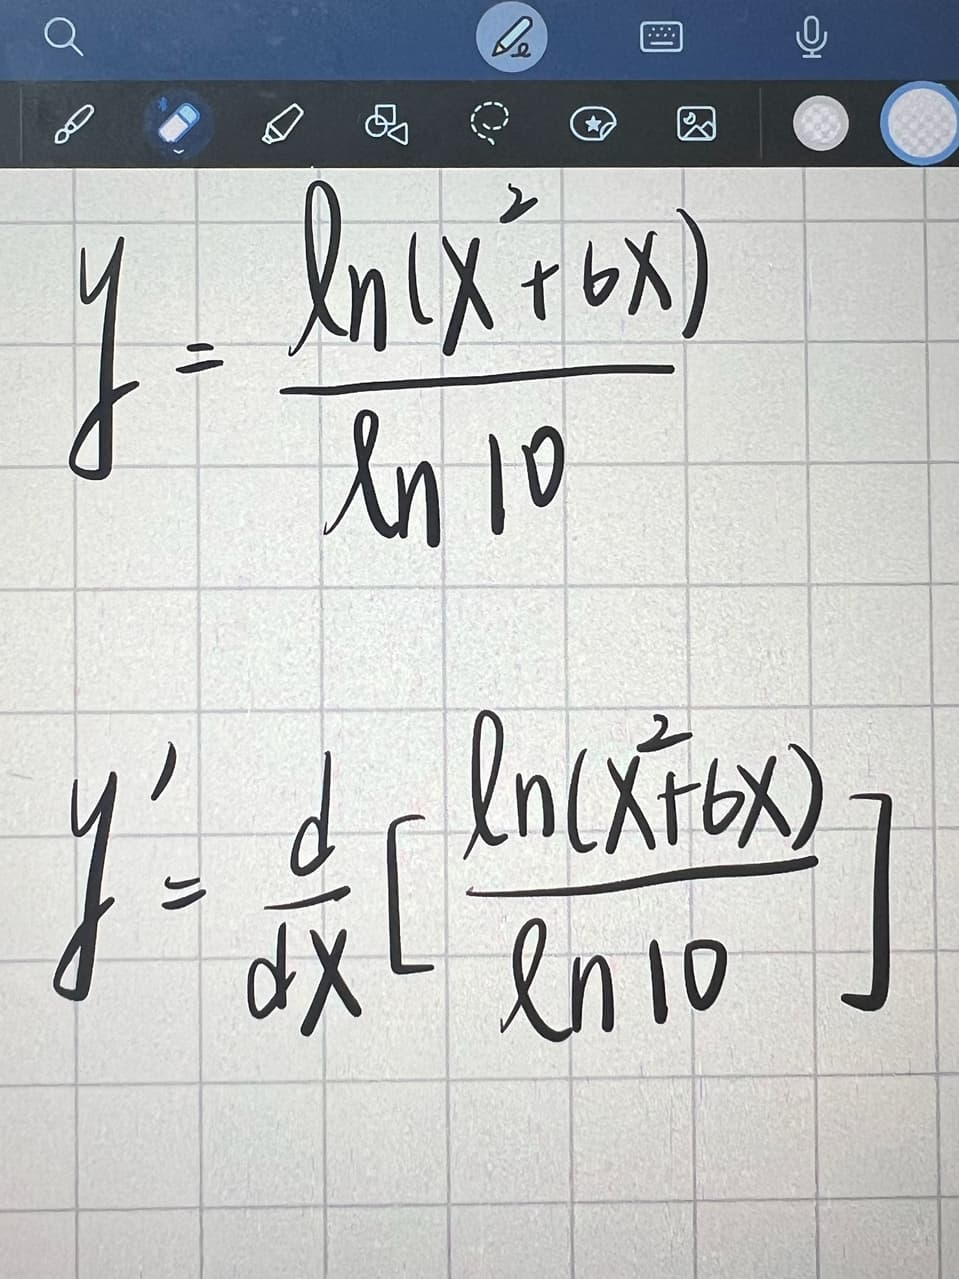 y = ln(x²+6x) / ln 10
y' = d/dx [ ln(x²+6x) / ln 10 ]